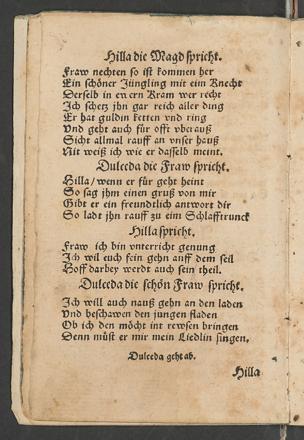 Hilla die Magd spricht.
Fraw nechten so ist kommen her
Ein schöner Jüngling mit eim Knecht
Derselb in ewern Kram wer recht
Ich schetz jhn gar reich aller ding
Er hat guldin ketten vnd ring
Vnd geht auch für offt vberauß
Sicht allmal rauff an vnser hauß
Nit weiß ich wie er dasselb meint.
Dulceda die Fraw spricht.
Hilla / wenn er für geht heint
So sag jhm einen gruß von mir
Gibt er ein freundtlich antwort dir
So ladt jhn rauff zu eim Schlafftrunck
Hilla spricht.
Fraw ich bin vnterricht genung
Ich wil euch fein gehn auff dem seil
Hoff darbey werdt auch sein theil.
Dulceda die schön Fraw spricht.
Ich will auch nauß gehn an den laden
Vnd beschawen den jungen fladen
Ob ich den möcht int rewsen bringen
Denn müst er mir mein Liedlin singen.
Dulceda geht ab.
Hilla